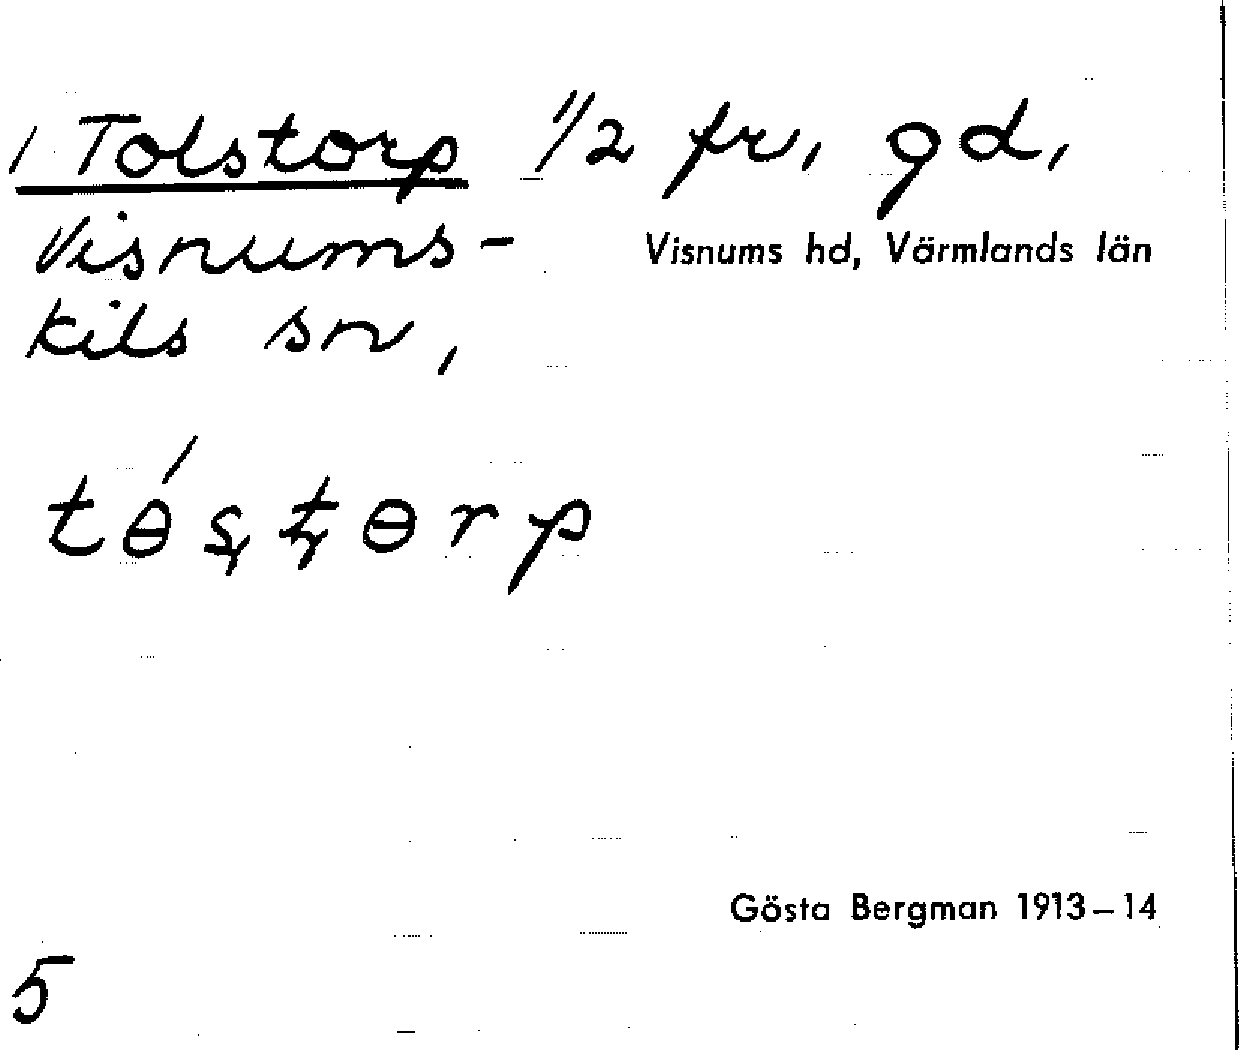 Tolstorp 1/2 fr, gd,
Visnums-
kils sn,
Visnums hd, Värmlands län
tɵ́ʂʈɵrp
Gösta Bergman 1913–14
5